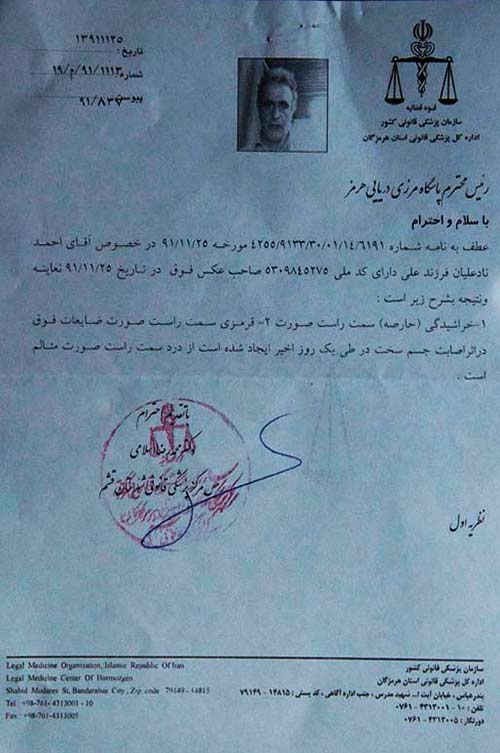 ۱۳۹۱۱۱۲۵
تاریخ:
شماره: ۱۹/م/۹۱/۱۱۱۳
پیوست: ۹۱/۸۳۷
قوه قضائیه
سازمان پزشکی قانونی کشور
اداره کل پزشکی قانونی استان هرمزگان
رئیس محترم پاسگاه مرزی دریایی هرمز
با سلام و احترام
عطف به نامه شماره ۴۲۵۵/۹۱۳۳/۳۰/۰۱/۱۴/۶۱۹۱ مورخه ۹۱/۱۱/۲۵ در خصوص آقای احمد
نادعلیان فرزند علی دارای کد ملی ۵۳۰۹۸۴۵۲۷۵ صاحب عکس فوق در تاریخ ۹۱/۱۱/۲۵ معاینه
ونتیجه بشرح زیر است :
۱-خراشیدگی (حارصه) سمت راست صورت ۲- قرمزی سمت راست صورت ضایعات فوق
دراثراصابت جسم سخت در طی یک روز اخیر ایجاد شده است از درد سمت راست صورت متالم
است..
با تقدیم احترام
دکتر محمدرضا اسلامی
مرکز پزشکی قانونی شهرستان قشم
نظریه اول
Legal Medicine Organization, Islamic Republic Of Iran
Legal Medicine Center Of Hormozgen
Shahid Modares St, Bandarabas City, Zip code 79149 - 14815
Tel : +98-761- 4313001 - 10
Fax : +98-761-4313005
سازمان پزشکی قانونی کشور
اداره کل پزشکی قانونی استان هرمزگان
بندرعباس، خیابان آیت ا... شهید مدرس، جنب اداره آگاهی، کد پستی : ۱۴۸۱۵ - ۷۹۱۴۹
تلفن : ۱۰ - ۴۳۱۳۰۰۱ - ۰۷۶۱
دورنگار : ۴۳۱۳۰۰۵ - ۰۷۶۱